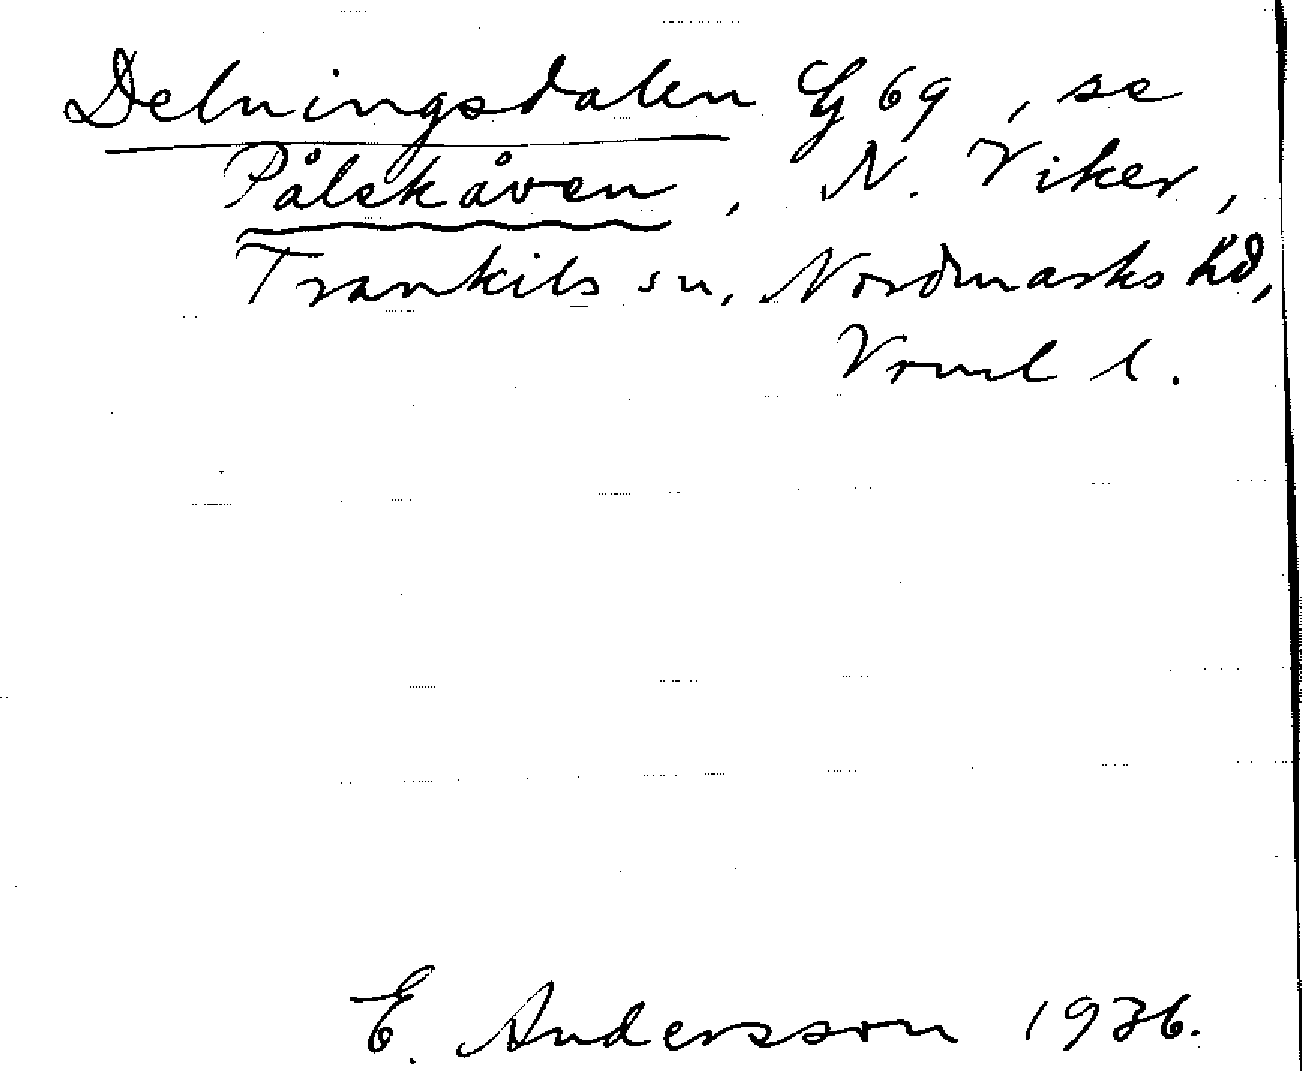 Delningsdalen G 69, se
Pålskåven, N. Viker,
Trankils sn, Nordmarks hd,
Vrml l.
E. Andersson 1936.